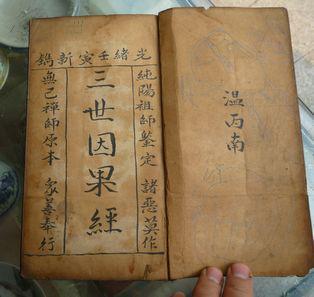 光緒壬寅新鐫
純陽祖師鑒定 諸惡莫作
三世因果經
無己禪師原本 眾善奉行
温丙南